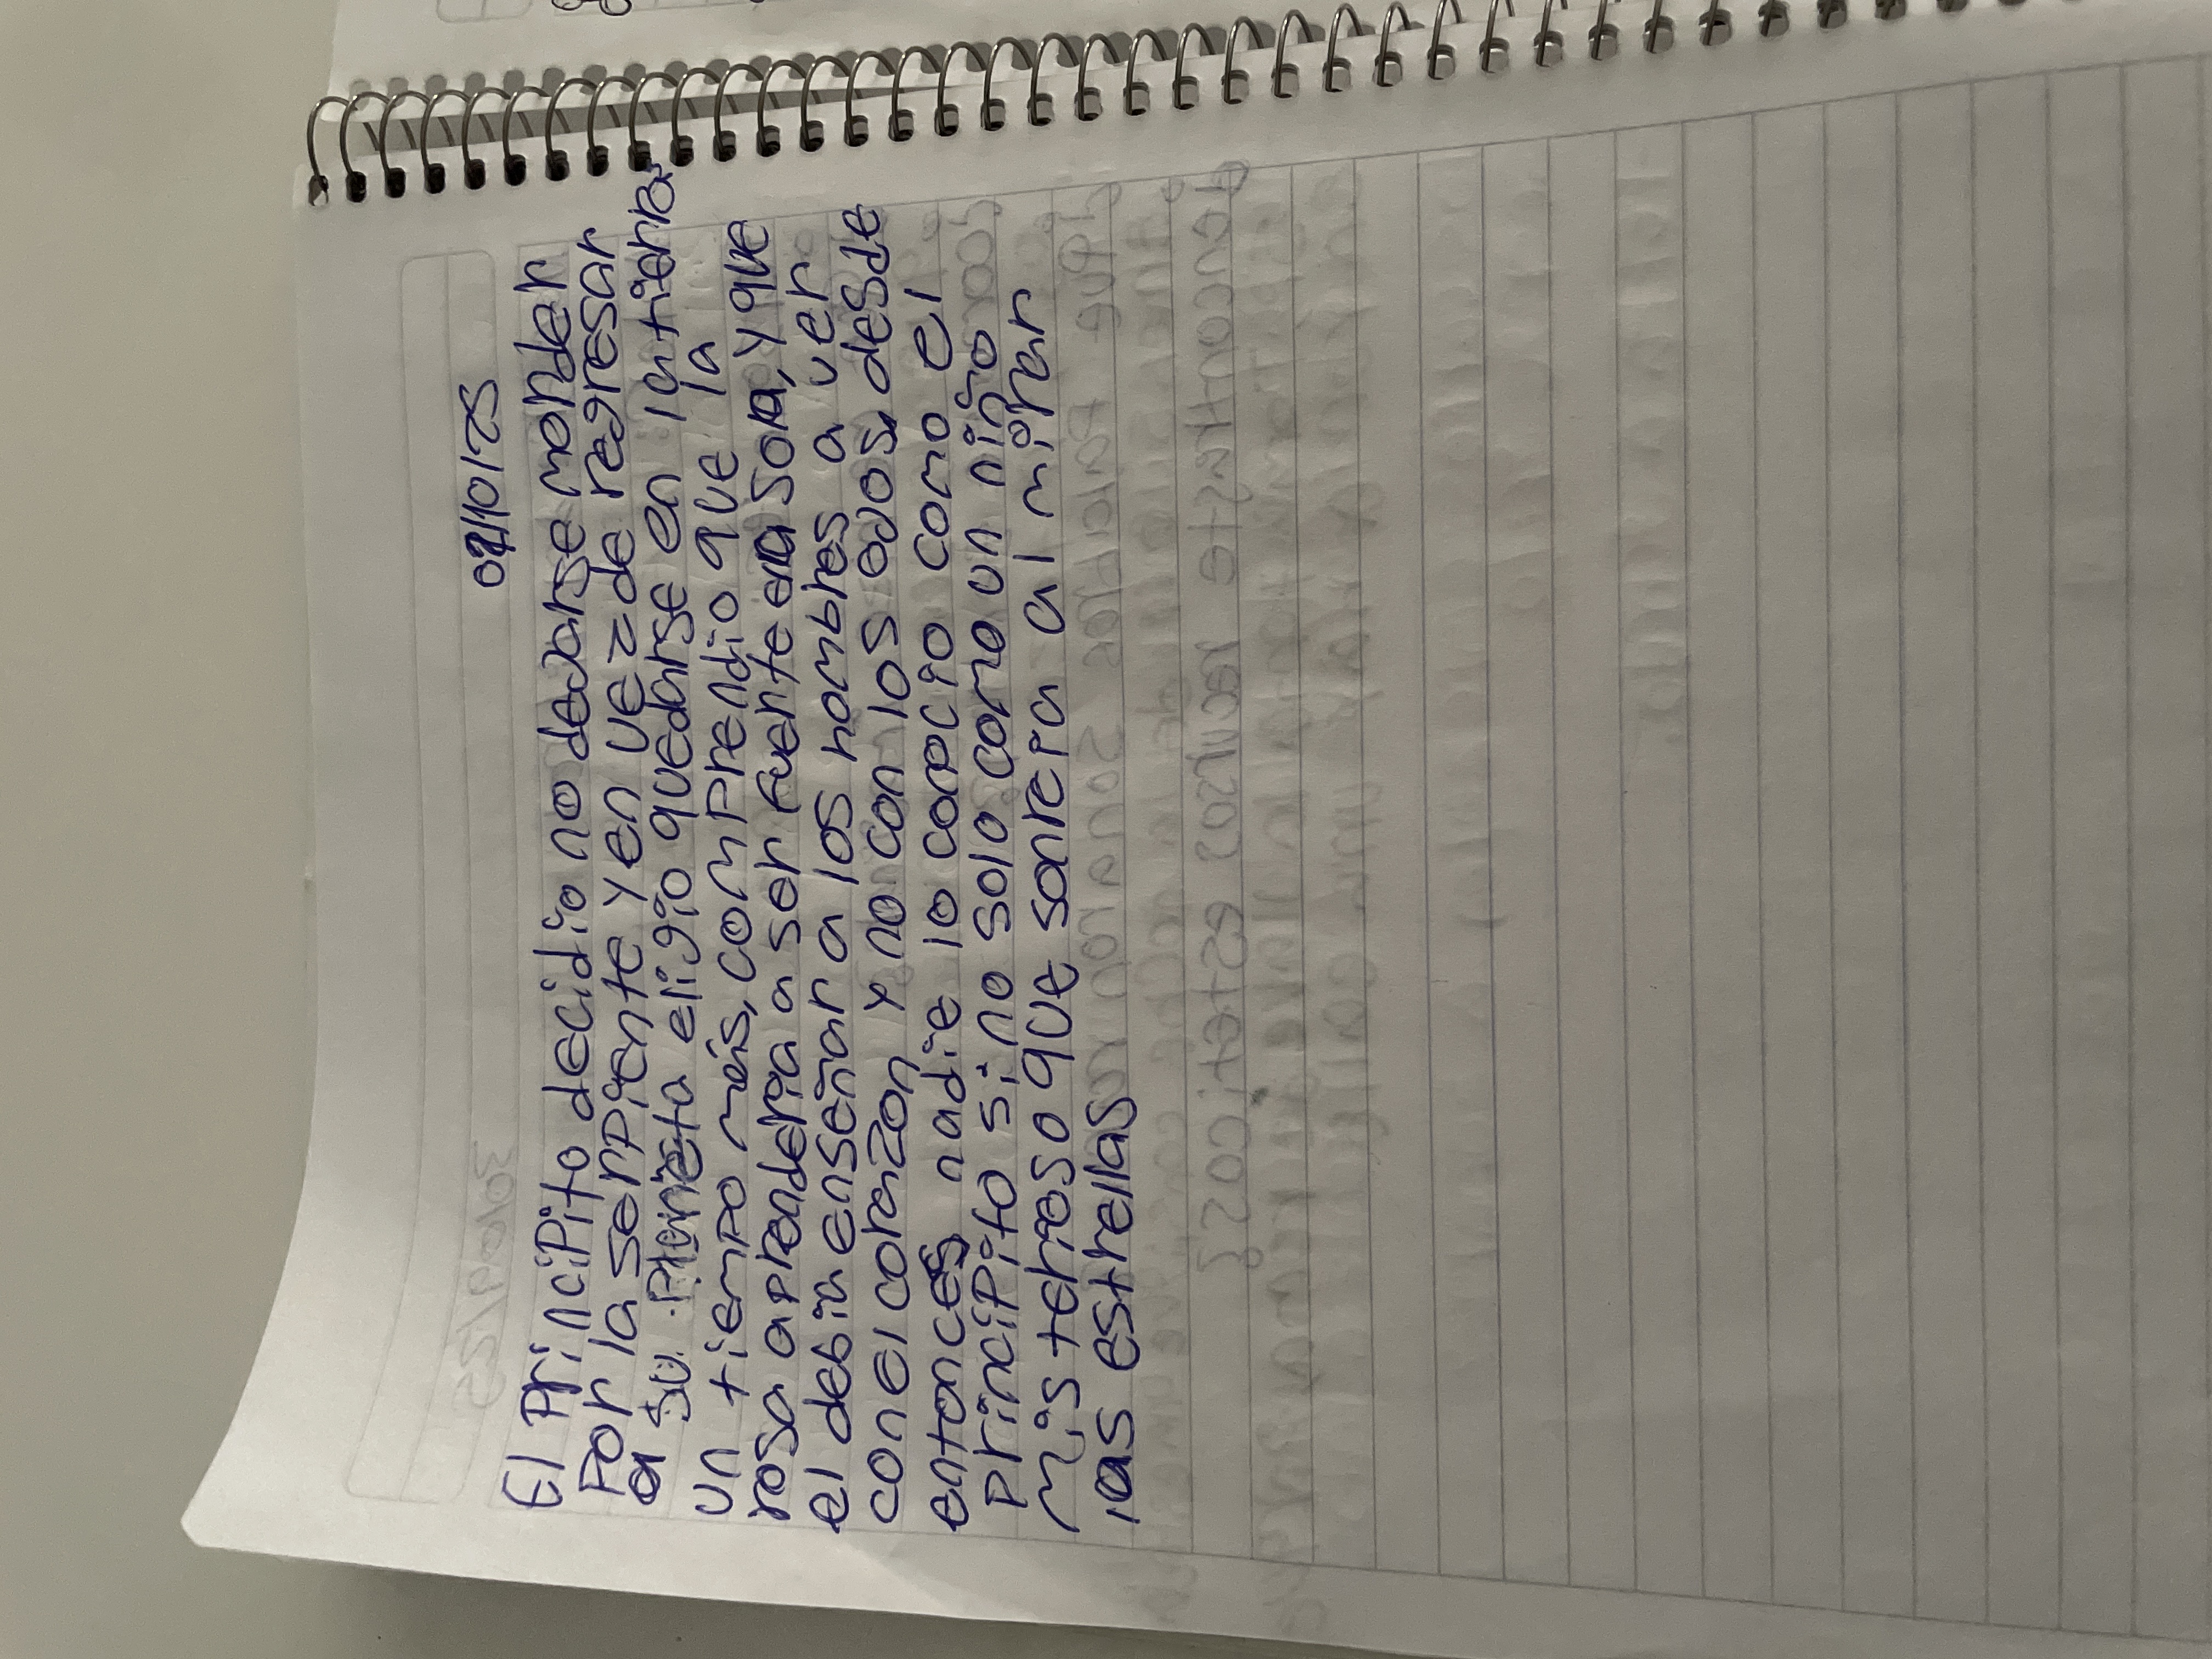 02/10/25
El Principito decidio no dejarse morder
Por la serpiente y en vez de regresar
a su Planeta eligio quedarse en la tierra
un tiempo más, comprendio que la
rosa aprenderia a ser fuente sola, y que
el debia enseñar a los hombres a ver
con el corazon y no con los ojos, desde
entonces nadie lo conocio como el
principito si no solo como un niño
misterioso que sonreia al mirar
las estrellas